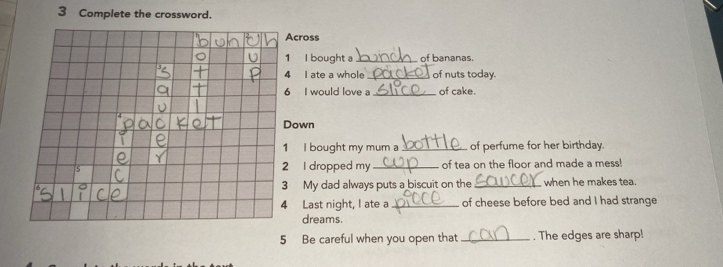 3 Complete the crossword.
b u n c h
o u
s t p
a t
u l
p a c k e t
i e
e r
5 c
s l i c e
Across
1 I bought a bunch of bananas.
4 I ate a whole packet of nuts today.
6 I would love a slice of cake.
Down
1 I bought my mum a bottle of perfume for her birthday.
2 I dropped my cup of tea on the floor and made a mess!
3 My dad always puts a biscuit on the saucer when he makes tea.
4 Last night, I ate a piece of cheese before bed and I had strange
dreams.
5 Be careful when you open that can. The edges are sharp!